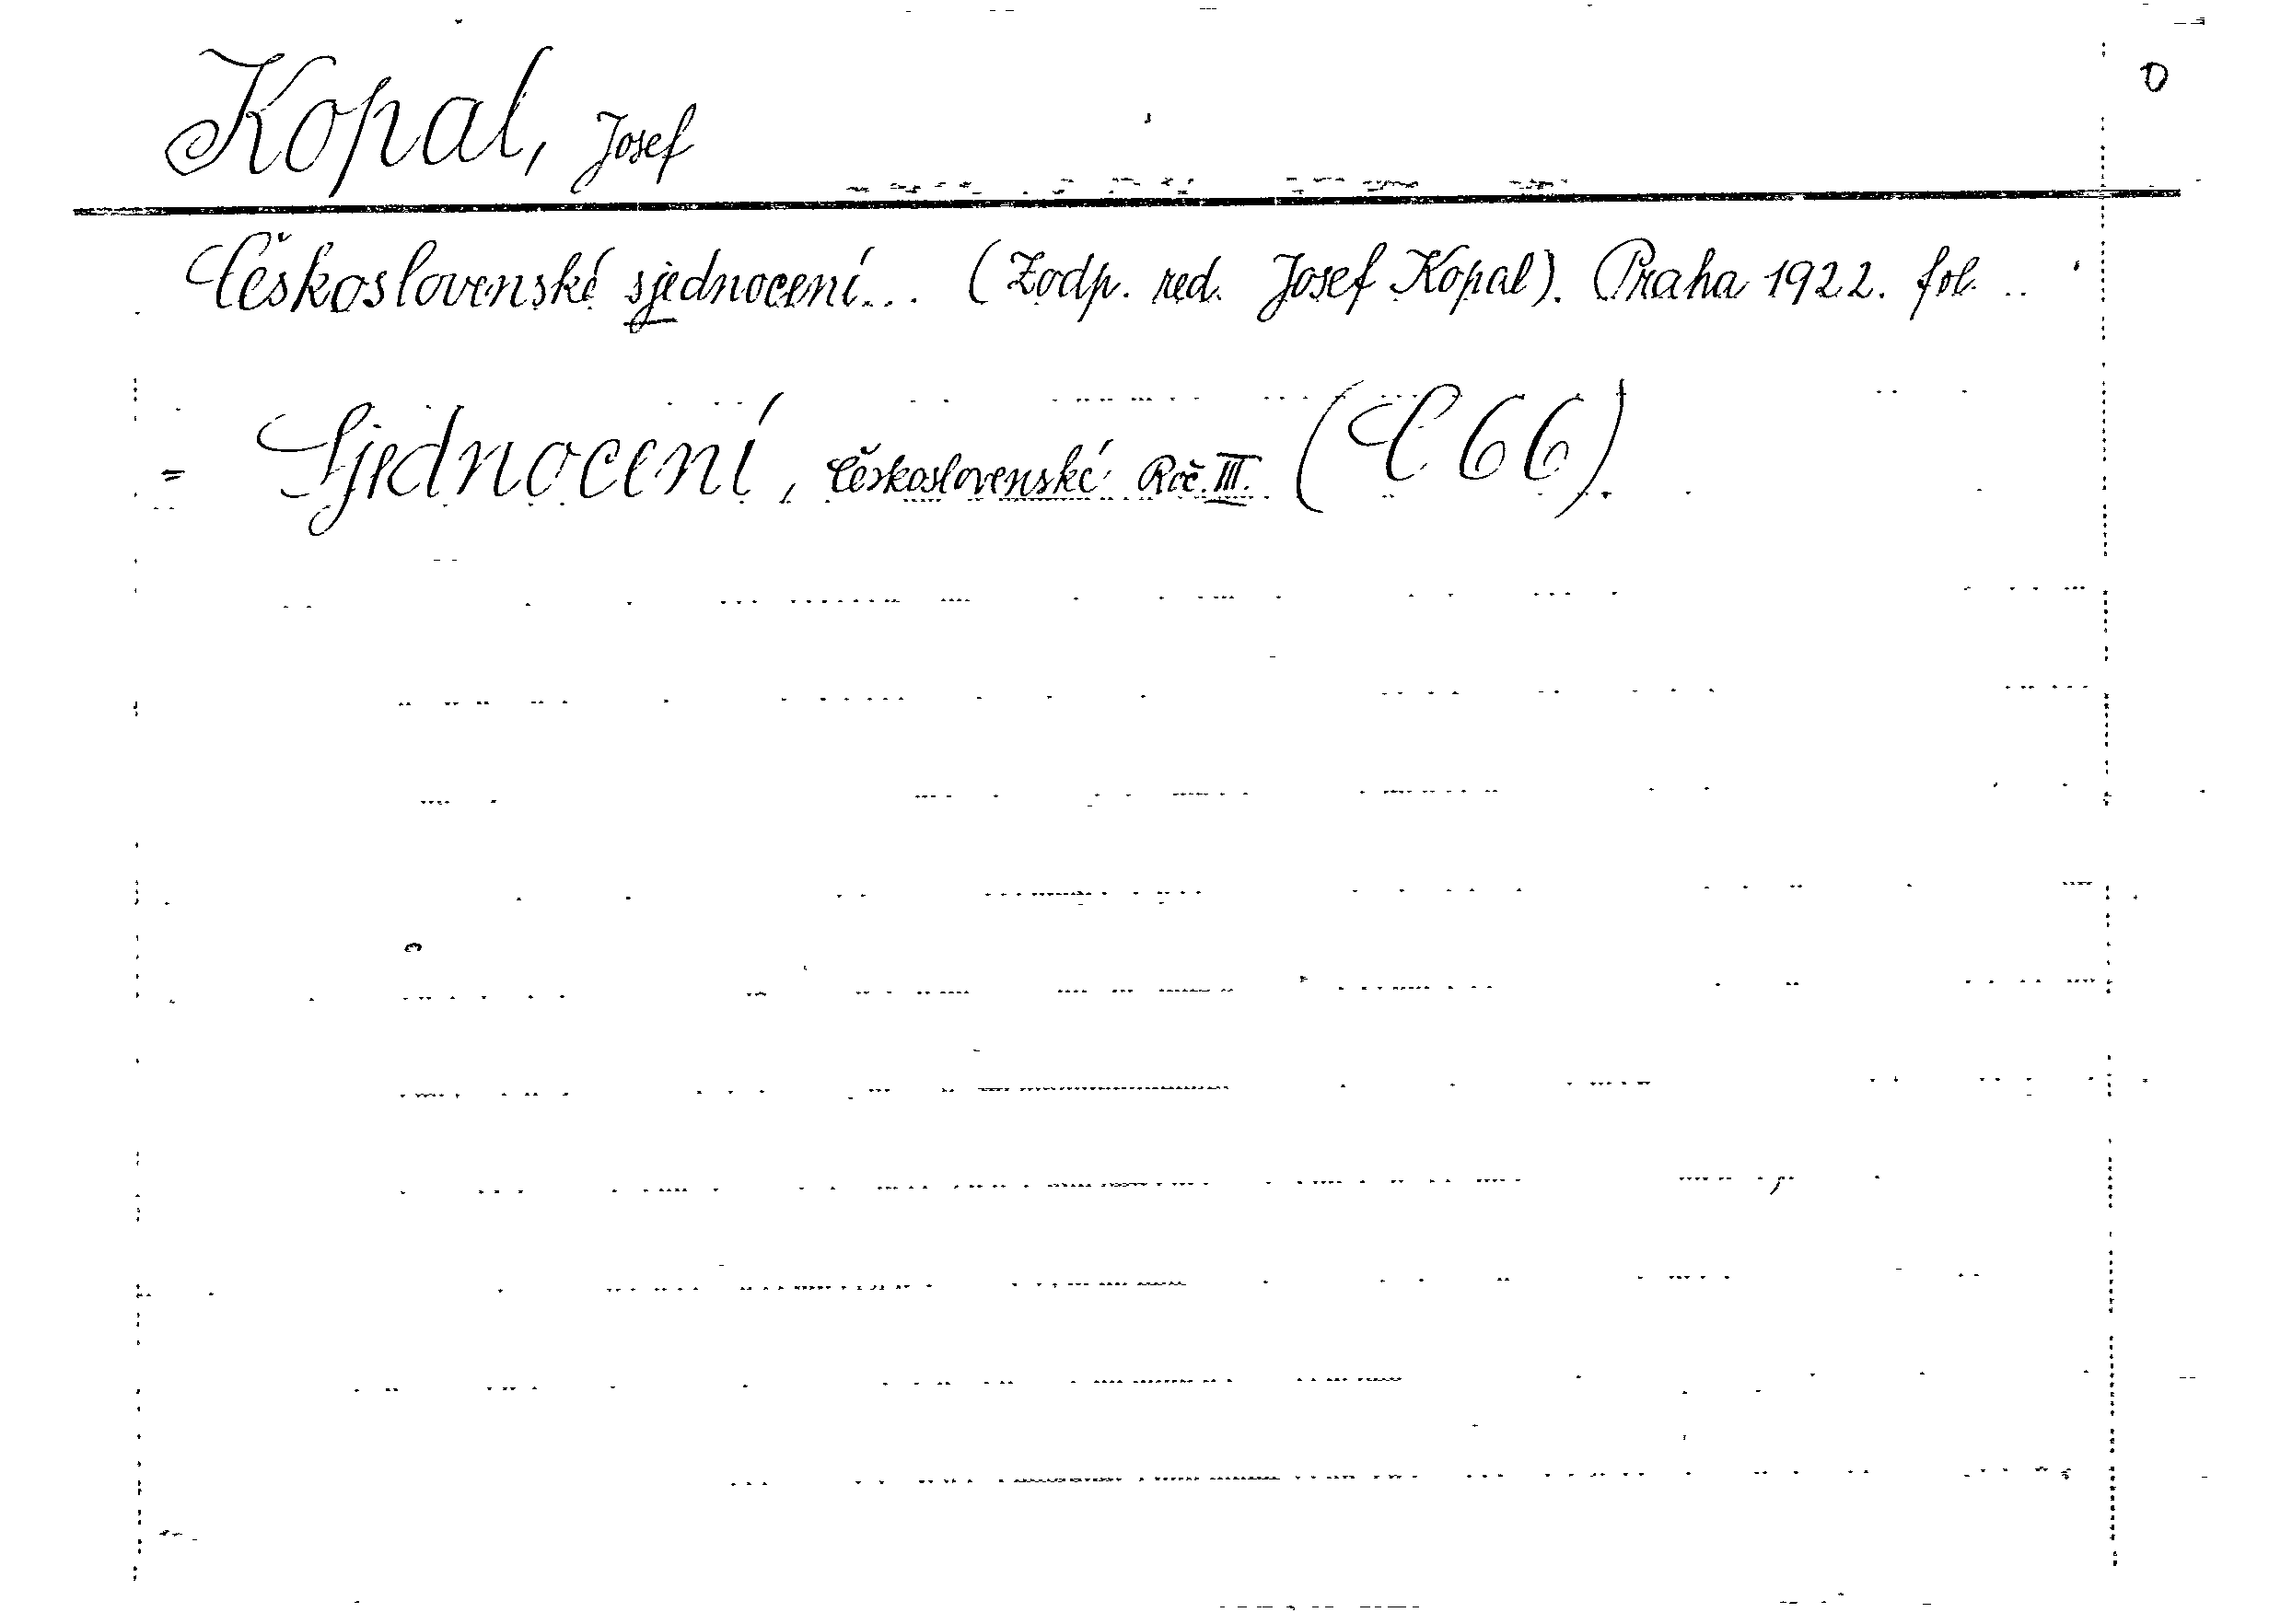 Kopal, Josef
Československé sjednocení... (Zodp. red. Josef Kopal). Praha 1922. fol.
= Sjednocení, Československé Roč. III. (C 66).